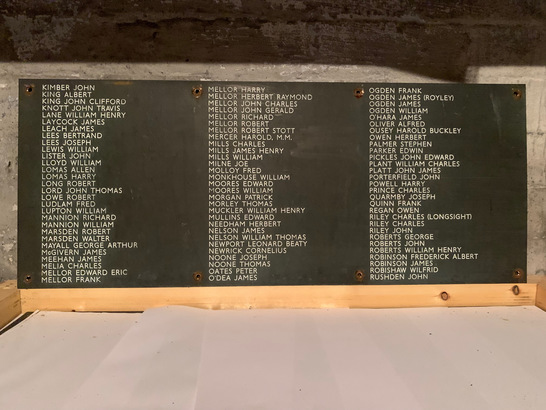 KIMBER JOHN
KING ALBERT
KING JOHN CLIFFORD
KNOTT JOHN TRAVIS
LANE WILLIAM HENRY
LAYCOCK JAMES
LEACH JAMES
LEES BERTRAND
LEES JOSEPH
LEWIS WILLIAM
LISTER JOHN
LLOYD WILLIAM
LOMAS ALLEN
LOMAS HARRY
LONG ROBERT
LORD JOHN THOMAS
LOWE ROBERT
LUDLAM FRED
LUPTON WILLIAM
MANNION RICHARD
MANNION WILLIAM
MARSDEN ROBERT
MARSDEN WALTER
MAYALL GEORGE ARTHUR
McGIVERN JAMES
MEEHAN JAMES
MELIA CHARLES
MELLOR EDWARD ERIC
MELLOR FRANK
MELLOR HARRY
MELLOR HERBERT RAYMOND
MELLOR JOHN CHARLES
MELLOR JOHN GERALD
MELLOR RICHARD
MELLOR ROBERT
MELLOR ROBERT STOTT
MERCER HAROLD, M.M.
MILLS CHARLES
MILLS JAMES HENRY
MILLS WILLIAM
MILNE JOE
MOLLOY FRED
MONKHOUSE WILLIAM
MOORES EDWARD
MOORES WILLIAM
MORGAN PATRICK
MORLEY THOMAS
MUCKLER WILLIAM HENRY
MULLINS EDWARD
NEEDHAM HERBERT
NELSON JAMES
NELSON WILLIAM THOMAS
NEWPORT LEONARD BEATY
NEWRICK CORNELIUS
NOONE JOSEPH
NOONE THOMAS
OATES PETER
O'DEA JAMES
OGDEN FRANK
OGDEN JAMES (ROYLEY)
OGDEN JAMES
OGDEN WILLIAM
O'HARA JAMES
OLIVER ALFRED
OUSEY HAROLD BUCKLEY
OWEN HERBERT
PALMER STEPHEN
PARKER EDWIN
PICKLES JOHN EDWARD
PLANT WILLIAM CHARLES
PLATT JOHN JAMES
PORTERFIELD JOHN
POWELL HARRY
PRINCE CHARLES
QUARMBY JOSEPH
QUINN FRANK
REGAN OWEN
RILEY CHARLES (LONGSIGHT)
RILEY CHARLES
RILEY JOHN
ROBERTS GEORGE
ROBERTS JOHN
ROBERTS WILLIAM HENRY
ROBINSON FREDERICK ALBERT
ROBINSON JAMES
ROBISHAW WILFRID
RUSHDEN JOHN